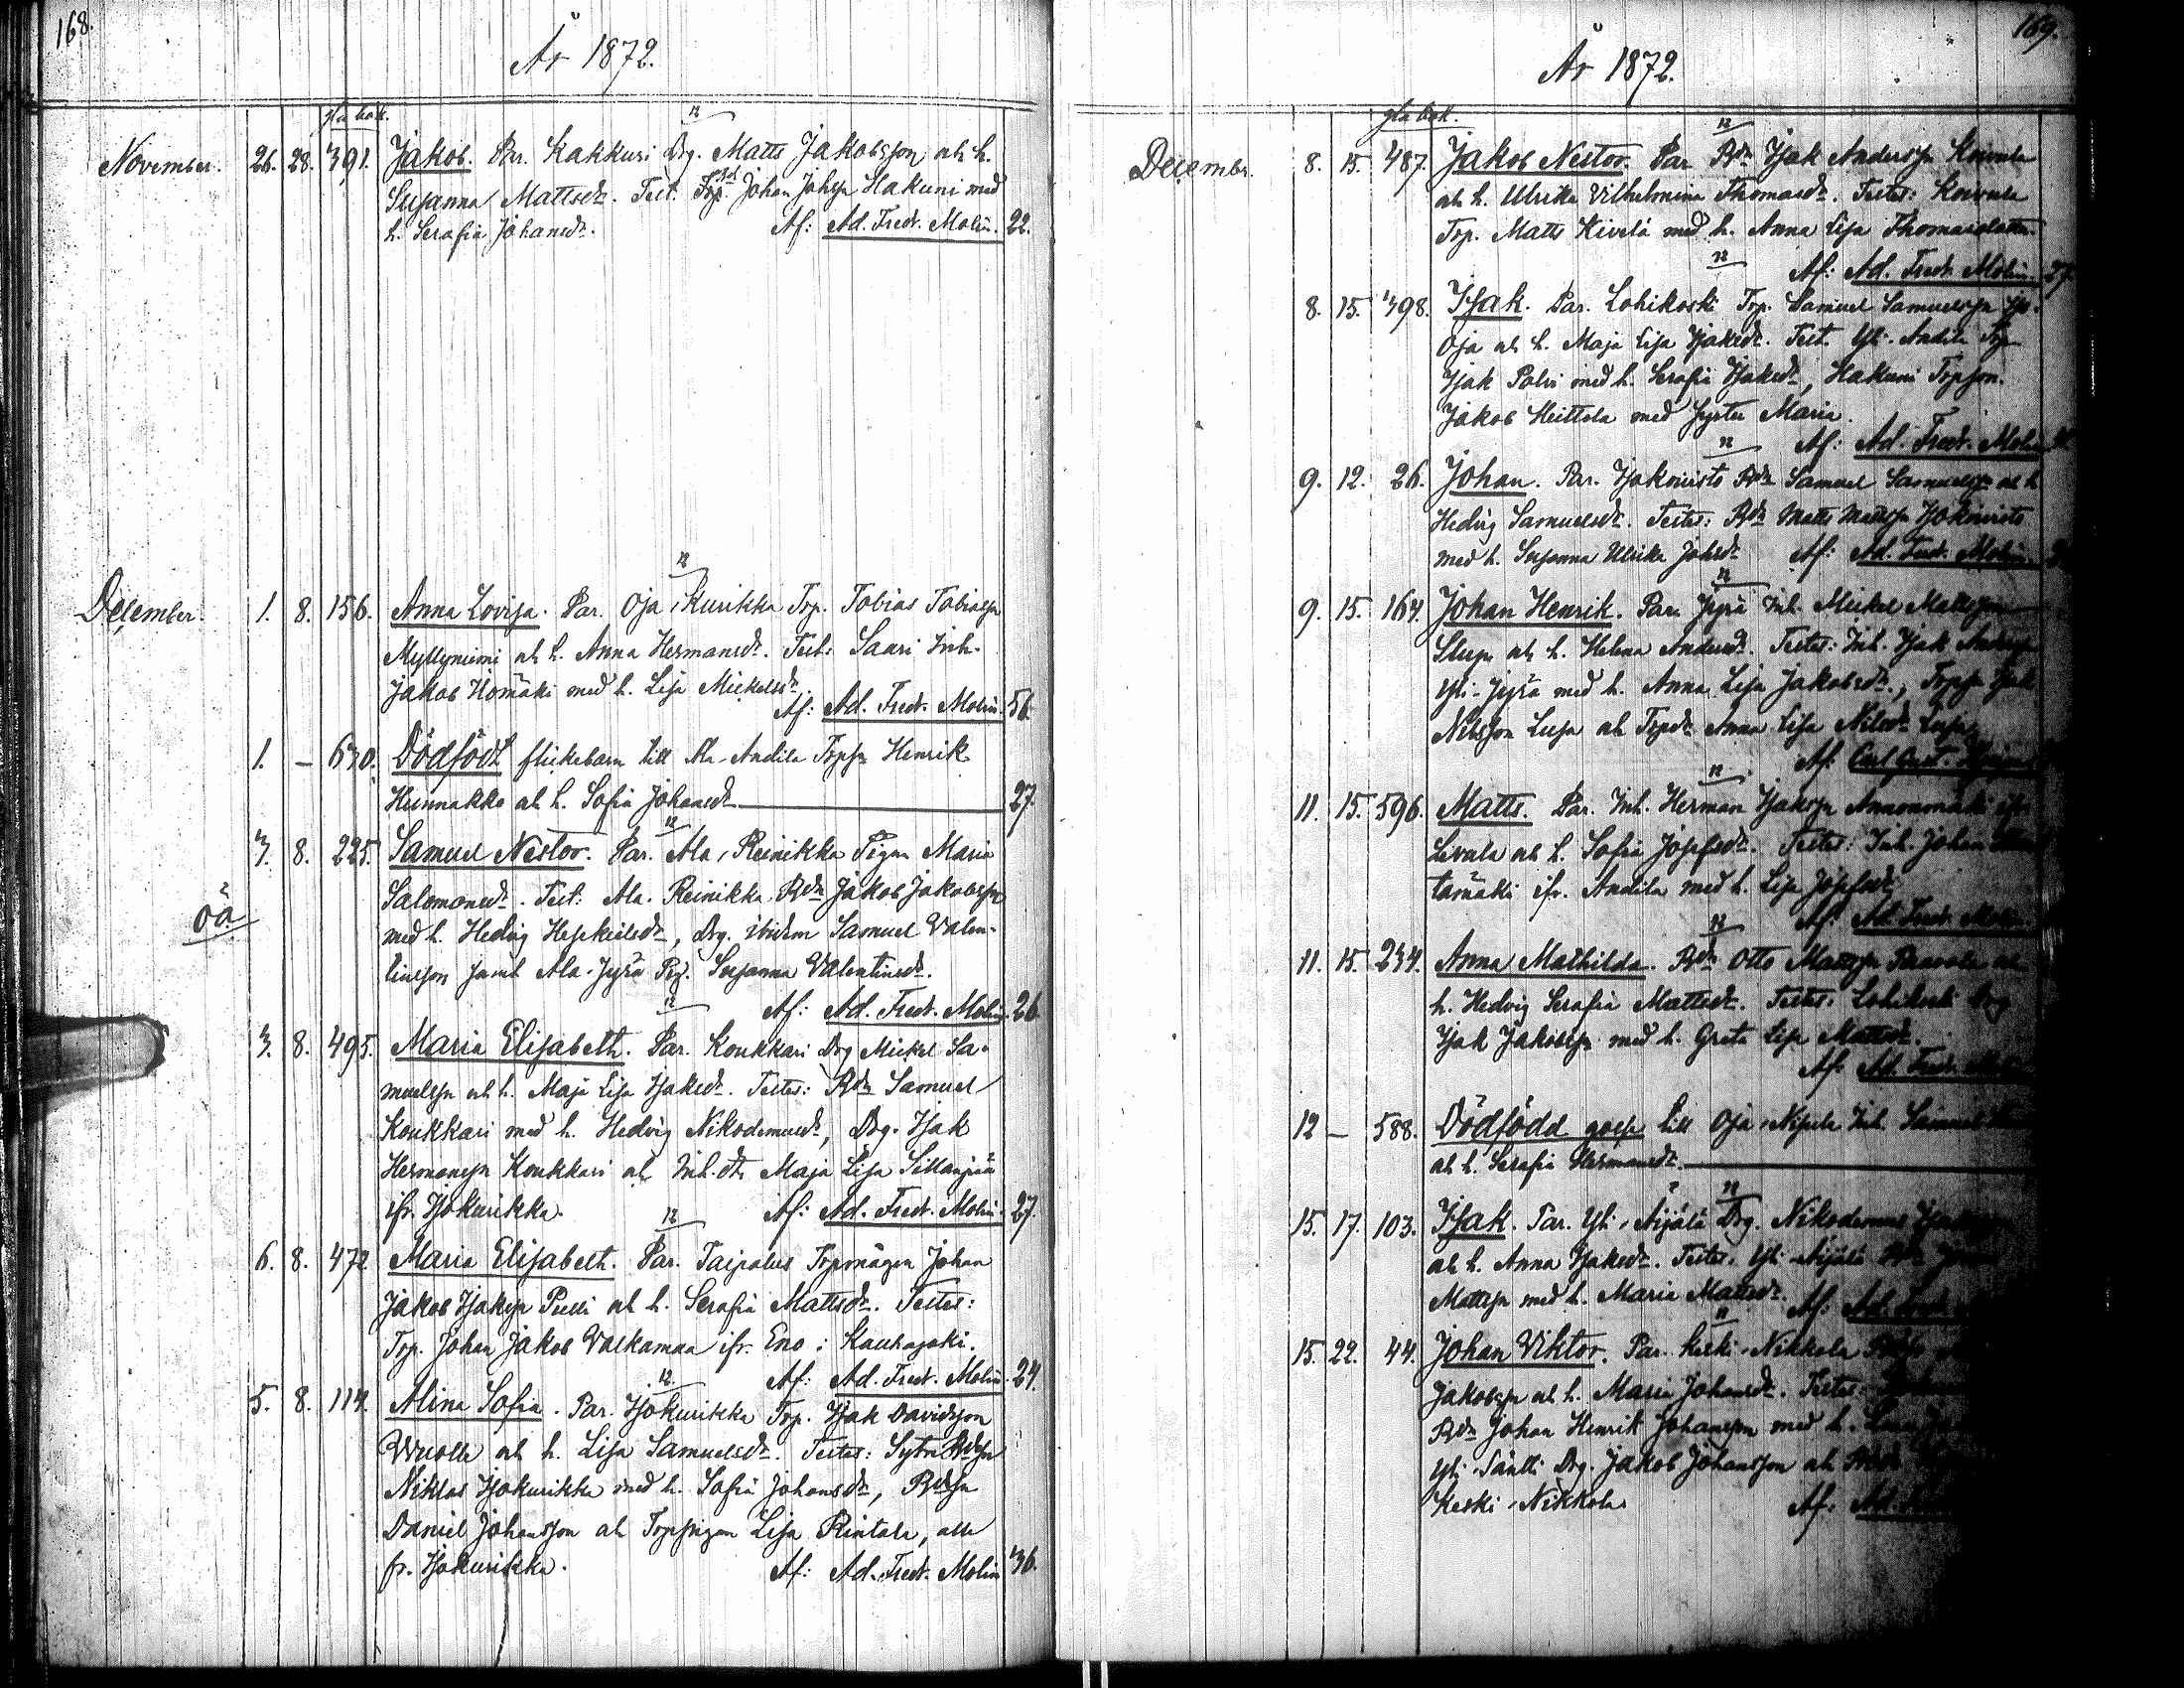 168.
År 1872.
gla bok.
November. 26. 28. 391. Jakob. Par. Kakkuri Drg. Matts Jakobsson och h.
Susanna Mattsdr. Test. Trp. Johan Johsn Hakuni med
h. Serafia Johansdr. Af: Ad. Fredr. Molin. 22.
December. 1. 8. 156. Anna Lovisa. Par. Oja, Kurikka Trp. Tobias Tobiassn
Myllyniemi och h. Anna Hermansdr. Test: Saari Inh.
Jakob Homäki med h. Lisa Mickelsdr.
Af: Ad. Fredr. Molin. 56.
1. — 630. Dödfödt flickebarn till Ala-Andila Trpsn Henrik
Hunnakko och h. Sofia Johansdr 27.
3. 8. 225. Samuel Nestor. Par. Ala-Reinikka Pigan Maria
Salomonsdr. Test: Ala-Reinikka Bdn Jakob Jakobssn
oä
med h. Hedvig Heskeilsdr, Drg. ibidem Samuel Valen-
tinsson samt Ala-Jyrä Pig. Susanna Valentinsdr.
Af: Ad. Fredr. Molin. 26.
3. 8. 495. Maria Elisabeth. Par. Koukkari Drg Mickel Sa-
muelssn och h. Maja Lisa Isaksdr. Testes: Bdn Samuel
Koukkari med h. Hedvig Nikodemusdr, Drg. Isak
Hermanssn Koukkari och Inh. dtr Maja Lisa Sillanpää
ifr. Isokurikka. Af: Ad. Fredr. Molin. 27.
6. 8. 472. Maria Elisabeth. Par. Taipalus Trpmågen Johan
Jakob Isakssn Pelli och h. Serafia Mattsdr. Testes:
Trp. Johan Jakob Valkamaa ifr. Eno i Kauhajoki.
Af: Ad. Fredr. Molin. 24.
5. 8. 114. Alina Sofia. Par. Isokurikka Trp. Isak Davidsson
Wuolle och h. Lisa Samuelsdr. Testes: Sytn Bdsn
Niklas Isokurikka med h. Sofia Johansdr, Bdsn
Daniel Johansson och Trppigan Lisa Rintala, alla
fr. Isokurikka. Af: Ad. Fredr. Molin 36.
169.
År 1872.
gla bok.
December. 8. 15. 487. Jakob Nestor. Par. Bdn Isak Anderssn Koivula
och h. Ulrika Vilhelmina Thomasdr. Testes: Koivula
Trp. Matts Kivelä med h. Anna Lisa Thomasdotter.
Af: Ad. Fredr. Molin. 27.
8. 15. 398. Isak. Par. Lohikoski Trp. Samuel Samuelssn
Oja och h. Maja Lisa Isaksdr. Test. Yli-Andila Trp
Isak Polvi med h. Serafia Isaksdr, Hakuni Trpson
Jakob Heittola med syster Maria.
Af: Ad. Fredr. Molin
9. 12. 26. Johan. Par. Isokoivisto Bdn Samuel Samuelssn och h
Hedvig Samuelsdr. Testes: Bdn Matts Mattssn Isokoivisto
med h. Susanna Ulrika Johsdr Af: Ad. Fredr. Molin.
9. 15. 164. Johan Henrik. Par. Jyrä Inh. Mickel Mattsson
och h. Helena Andersdr. Testes: Inh. Isak Anderssn
Yli-Jyrä med h. Anna Lisa Jakobsdr., Trpsn Isak
Nilsson Luoja och Trpdr Anna Lisa Nilsdr
Af: Carl Gust.
11. 15. 596. Matts. Par. Inh. Herman Isakssn ifr.
Levala och h. Sofia Josefsdr. Testes: Inh. Johan
tamäki ifr. Andila med h. Lisa Josefsdr
Af: Ad. Fredr. Molin
11. 15. 234. Anna Mathilda. Bdn Otto Mattssn Paavola och
h. Hedvig Serafia Mattsdr. Testes: Lohikoski Drg
Isak Jakobssn med h. Greta Lisa Mattsdr.
Af: Ad. Fredr. Molin
12 — 588. Dödfödd gosse till Oja Nipula Inh. Samuel
och h. Serafia Hermansdr.
15. 17. 103. Isak. Par. Yli-Äijälä Drg. Nikodemus
och h. Anna Isaksdr. Testes: Yli-Äijälä Bdn
Mattssn med h. Maria Mattsdr. Af: Ad. Fredr.
15. 22. 44. Johan Viktor. Par. Keski-Nikkola
Jakobssn och h. Maria Johansdr. Testes:
Bdn Johan Henrik Johansson med h.
Yli-Säntti Drg. Jakob Johansson och
Keski-Nikkola Af: Ad.